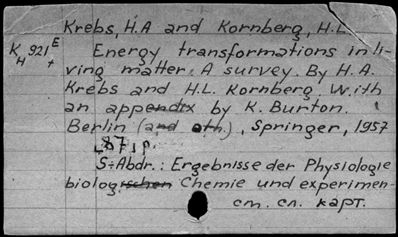 Krebs, H.A and Kornberg, H.L.
K H 921 E +
Energy transformations in li-
ving matter. A survey. By H.A.
Krebs and H.L. Kornberg. With
an appendix by K. Burton.
Berlin (and oth.), Springer, 1957
87 p.
S-Abdr.: Ergebnisse der Physiologie
biologischen Chemie und experimen-
ст. сл. карт.